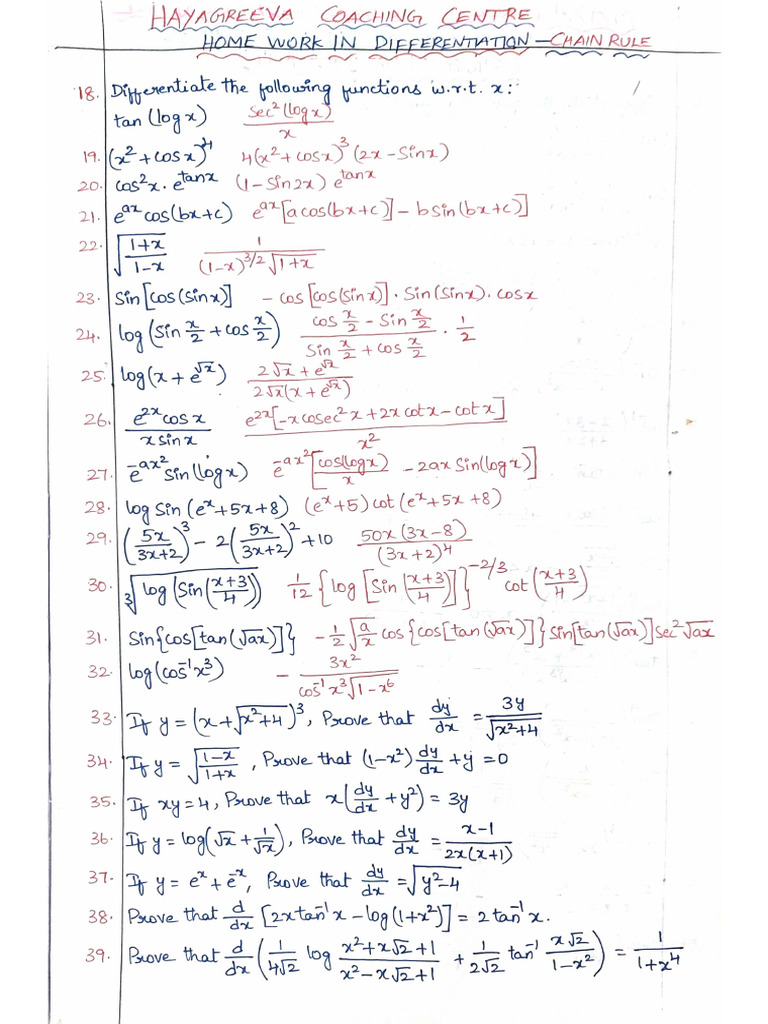 HAYAGREEVA COACHING CENTRE
HOME WORK IN DIFFERENTIATION – CHAIN RULE
18. Differentiate the following functions w.r.t. x:
tan(log x) sec²(log x)/x
19. (x²+cosx)⁴ 4(x²+cosx)³(2x-Sinx)
20. cos²x·e^tanx (1-Sin2x)e^tanx
21. e^ax cos(bx+c) e^ax[acos(bx+c)]-bsin(bx+c)]
22. √((1+x)/(1-x)) 1/((1-x)^3/2 √(1+x))
23. Sin[cos(sinx)] -cos[cos(sinx)]·Sin(Sinx)·cosx
24. log(Sin x/2 + cos x/2) (cos x/2 - Sin x/2)/(Sin x/2 + cos x/2) · 1/2
25. log(x+e^√x) (2√x+e^√x)/(2√x(x+e^√x))
26. (e^2x cosx)/(x sinx) e^2x[-xcosec²x+2xcotx-cotx]/x²
27. e^-ax² sin(logx) e^-ax²[cos(logx)/x - 2ax Sin(logx)]
28. log Sin(e^x+5x+8) (e^x+5)cot(e^x+5x+8)
29. (5x/(3x+2))³-2(5x/(3x+2))²+10 50x(3x-8)/(3x+2)⁴
30. ³√(log(Sin((x+3)/4))) 1/12{log[Sin((x+3)/4)]}^-2/3 cot((x+3)/4)
31. Sin{cos[tan(√ax)]} -1/2√(a/x) cos{cos[tan(√ax)]}sin[tan(√ax)]sec²√ax
32. log(cos⁻¹x³) -3x²/(cos⁻¹x³√(1-x⁶))
33. If y=(x+√(x²+4))³, Prove that dy/dx = 3y/√(x²+4)
34. If y=√((1-x)/(1+x)), Prove that (1-x²)dy/dx+y=0
35. If xy=4, Prove that x(dy/dx+y²)=3y
36. If y=log(√x+1/√x), Prove that dy/dx = (x-1)/(2x(x+1))
37. If y=e^x+e^-x, Prove that dy/dx=√(y²-4)
38. Prove that d/dx[2xtan⁻¹x-log(1+x²)]=2tan⁻¹x.
39. Prove that d/dx(1/(4√2) log (x²+x√2+1)/(x²-x√2+1) + 1/(2√2) tan⁻¹ (x√2)/(1-x²)) = 1/(1+x⁴)